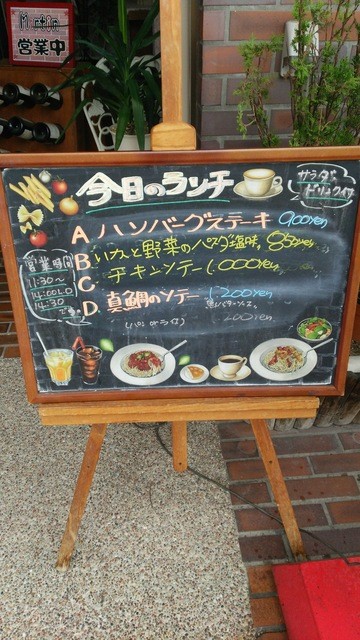 営業中
今日のランチ
サラダ
ドリンク
A ハンバーグステーキ 900yen
B いかと野菜のパスタ塩味 850yen
C チキンソテー 1,000yen
D 真鯛のソテー 1200yen
(パン or ライス)
営業時間
11:30〜
14:00LO
14:30